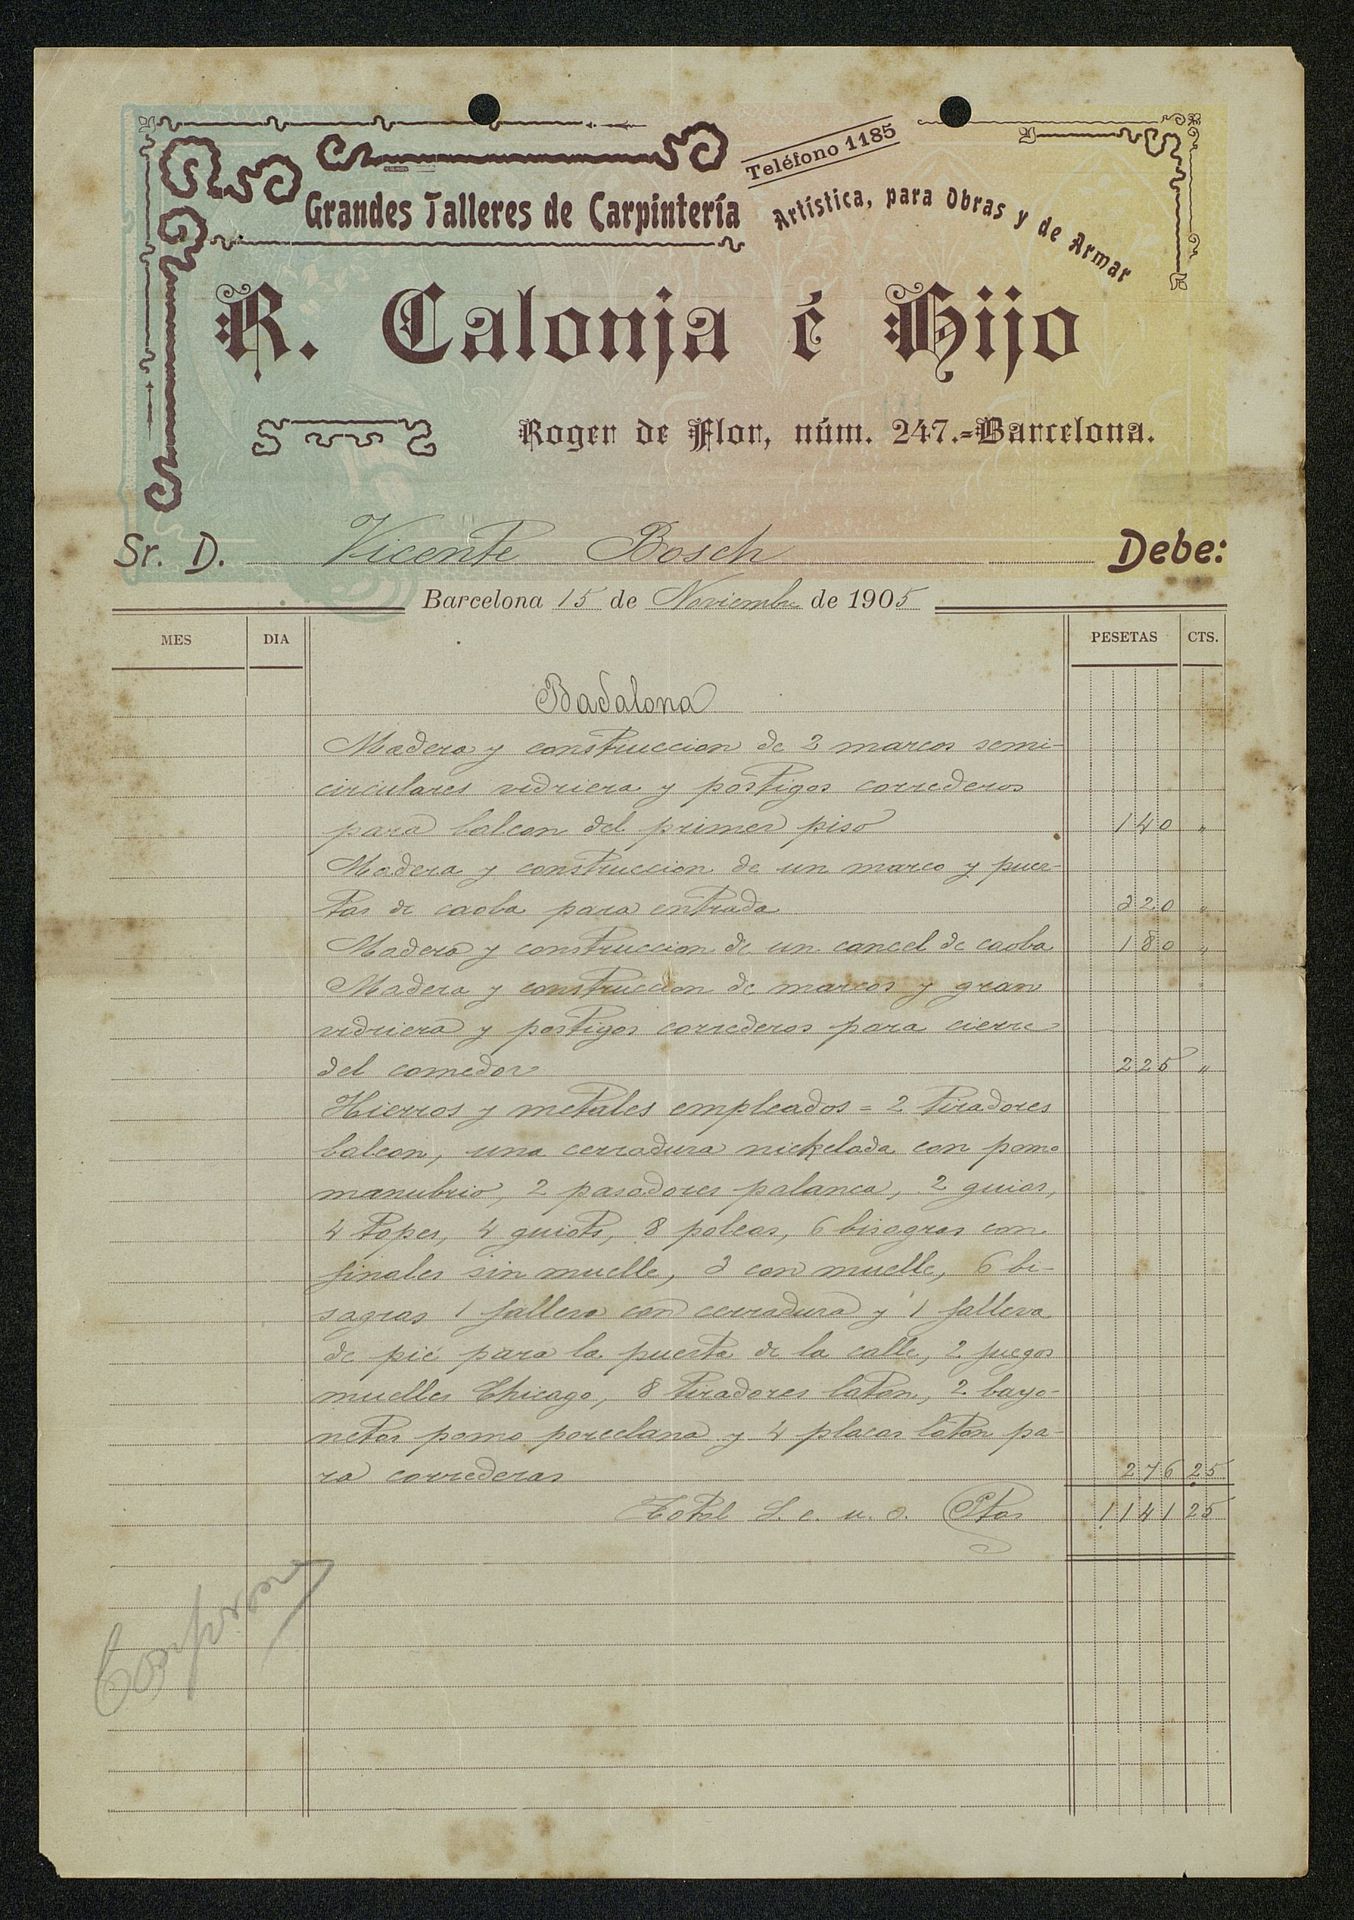 Teléfono 1185
Grandes Talleres de Carpintería
Artística, para Obras y de Armar
R. Calonja é Hijo
Roger de Flor, núm. 247.=Barcelona.
Sr. D. Vicente Bosch Debe:
Barcelona 15 de Noviembre de 1905
MES DIA PESETAS CTS.
Badalona
Madera y construccion de 3 marcos semi-
circulares vidriera y postigos correderos
para balcon del primer piso 140 "
Madera y construccion de un marco y puer-
tas de caoba para entrada 320 "
Madera y construccion de un cancel de caoba 180 "
Madera y construccion de marcos y gran
vidriera y postigos correderos para cierre
del comedor 225 "
Hierros y metales empleados = 2 tiradores
balcon, una cerradura nickelada con pomo
manubrio, 2 pasadores palanca, 2 guias,
4 topes, 4 guiots, 8 poleas, 6 bisagras con
finales sin muelle, 3 con muelle, 6 bi-
sagras 1 falleva con cerradura y 1 falleva
de pié para la puerta de la calle, 2 juegos
muelles Chicago, 8 tiradores laton, 2 bayo-
netas pomo porcelana y 4 placas laton pa-
ra correderas 276 25
Total S. e. u. o. Ptas 1141 25